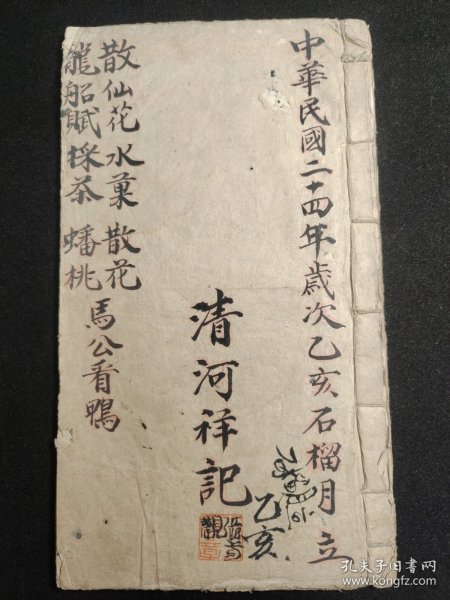 中華民國二十四年歲次乙亥石榴月立
乙亥
清河祥記
散仙花 水菓 散花
龍船賦 採茶 蟠桃
馬公看鴨
孔夫子旧书网